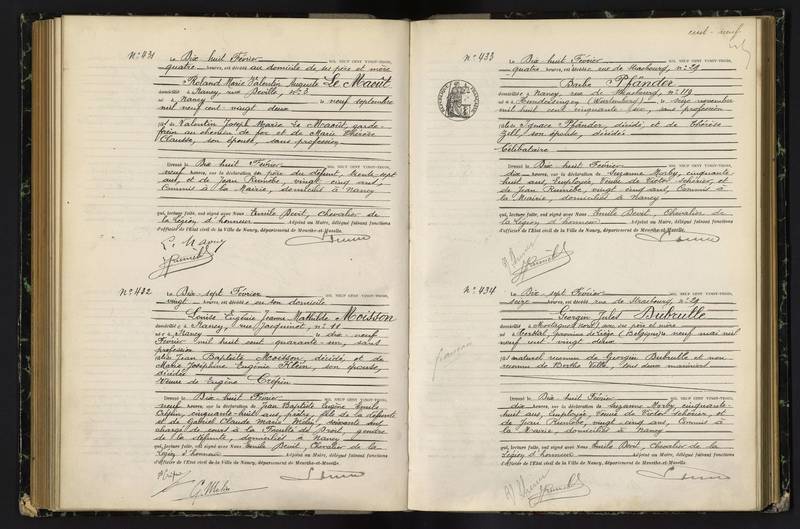 N° 431
Le Dix huit Février MIL NEUF CENT VINGT-TROIS,
quatre heures, est décédé au domicile de ses père et mère
Roland Marie Valentin Auguste Le Maoût
domicilié à Nancy, rue Deville, n° 3
né à Nancy le neuf septembre
mil neuf cent vingt deux
fils de Valentin Joseph Marie Le Maoût, garde-
frein au chemin de fer et de Marie Thérèse
Clausse, son épouse, sans profession
Dressé le Dix huit Février MIL NEUF CENT VINGT-TROIS,
neuf heures, sur la déclaration du père du défunt, trente sept
ans, et de Jean Ruinebe, vingt cinq ans,
Commis à la Mairie, domiciliés à Nancy
qui, lecture faite, ont signé avec Nous Emile Devit, Chevalier de
la Légion d'honneur Adjoint au Maire, délégué faisant fonctions
d'officier de l'Etat civil de la Ville de Nancy, département de Meurthe-et-Moselle.
N° 432
Le Dix-sept Février MIL NEUF CENT VINGT-TROIS,
vingt heures, est décédée en son domicile
Louise Eugénie Jeanne Mathilde Moisson
domiciliée à Nancy, rue Jacquinot, n° 11
née à Nancy le dix-neuf
Février mil huit cent quarante six, sans
profession
fille de Jean Baptiste Moisson, décédé et de
Marie Joséphine Eugénie Klein, son épouse,
décédée
Veuve de Eugène Crépin
Dressé le Dix huit Février MIL NEUF CENT VINGT-TROIS,
neuf heures, sur la déclaration de Jean Baptiste Eugène Emile
Crépin, cinquante-huit ans, prêtre, fils de la défunte
et de Gabriel Claude Marie Melin, soixante ans
chargé de cours à la Faculté de Droit, gendre
de la défunte, domiciliés à Nancy
qui, lecture faite, ont signé avec Nous Emile Devit, Chevalier de la
Légion d'honneur Adjoint au Maire, délégué faisant fonctions
d'officier de l'Etat civil de la Ville de Nancy, département de Meurthe-et-Moselle.
cent-neuf
N° 433
Le Dix huit Février MIL NEUF CENT VINGT-TROIS,
quatre heures, est décédée rue de Strasbourg, n° 29
Barbe Pfänder
domiciliée à Nancy, rue de Strasbourg, n° 119
née à (Wurtemberg) le treize novembre
mil huit cent cinquante six, sans profession
fille de Ignace Pfänder, décédé, et de Thérèse
Zell, son épouse, décédée
Célibataire
Dressé le Dix huit Février MIL NEUF CENT VINGT-TROIS,
dix heures, sur la déclaration de Suzanne Marby, cinquante-
huit ans, Employée, Veuve de Victor Schérier, et
de Jean Ruinebe, vingt cinq ans, Commis à
la Mairie, domiciliés à Nancy
qui, lecture faite, ont signé avec Nous Emile Devit, Chevalier de
la Légion d'honneur Adjoint au Maire, délégué faisant fonctions
d'officier de l'Etat civil de la Ville de Nancy, département de Meurthe-et-Moselle.
N° 434
Le Dix-sept Février MIL NEUF CENT VINGT-TROIS,
seize heures, est décédé rue de Strasbourg, n° 29
Georgin Jules Dubrulle
domicilié à Mortagne (Nord) avec ses père et mère
né à Herstal, province de Liège (Belgique) le neuf mai mil
neuf cent vingt deux
fils naturel reconnu de Georgin Dubrulle et non
reconnu de Berthe Ville, tous deux mariniers
Dressé le Dix huit Février MIL NEUF CENT VINGT-TROIS,
dix heures, sur la déclaration de Suzanne Marby, cinquante-
huit ans, Employée, Veuve de Victor Schérier, et
de Jean Ruinebe, vingt cinq ans, Commis à
la Mairie, domiciliés à Nancy
qui, lecture faite, ont signé avec Nous Emile Devit, Chevalier de la
Légion d'honneur Adjoint au Maire, délégué faisant fonctions
d'officier de l'Etat civil de la Ville de Nancy, département de Meurthe-et-Moselle.